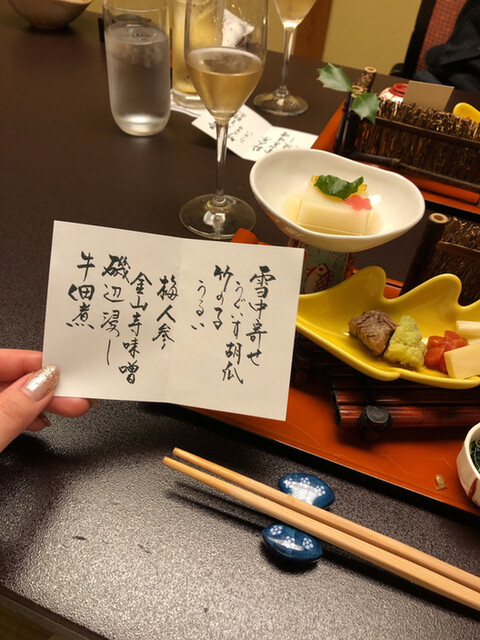 雪中寄せ
うぐいす胡瓜
竹の子
うるい
梅人参
金山寺味噌
磯辺浸し
牛佃煮